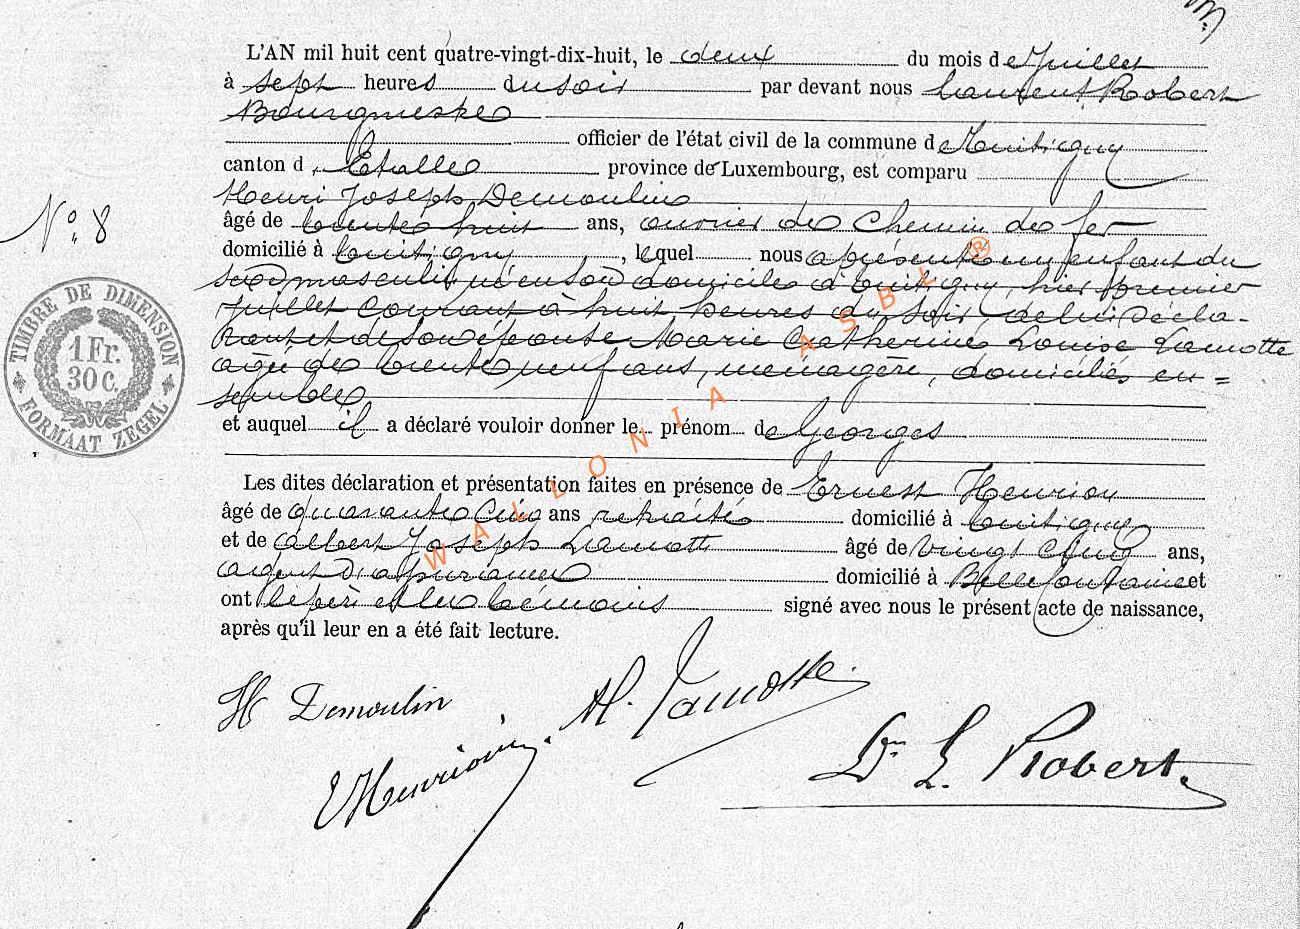 L'AN mil huit cent quatre-vingt-dix-huit, le deux du mois de Juillet
à sept heures du soir par devant nous Laurent Robert
Bourgmestre
officier de l'état civil de la commune de Tintigny
canton d'Etalle province de Luxembourg, est comparu
Henri Joseph Demoulin
N° 8
âgé de trente huit ans, ouvrier de chemin de fer
domicilié à Tintigny, lequel nous a présenté un enfant du
sexe masculin, né en son domicile à Tintigny, hier premier
Juillet courant à huit heures du soir, de lui Décla-
rant et de son épouse Marie Catherine Louise Lamotte
agée de trente neuf ans, ménagère, domiciliés en=
semble
et auquel il a déclaré vouloir donner le prénom de Georges
Les dites déclaration et présentation faites en présence de Ernest Henrion
âgé de quarante cinq ans retraité domicilié à Tintigny
et de Albert Joseph Lamotte âgé de vingt cinq ans,
agent d'assurances domicilié à Bellefontaine et
ont le père et les témoins signé avec nous le présent acte de naissance,
après qu'il leur en a été fait lecture.
TIMBRE DE DIMENSION
1 Fr.
30 C.
FORMAAT ZEGEL
WALLONIA ASBL ®
H Demoulin
A. Lamotte
E Henrion
Dr L. Robert